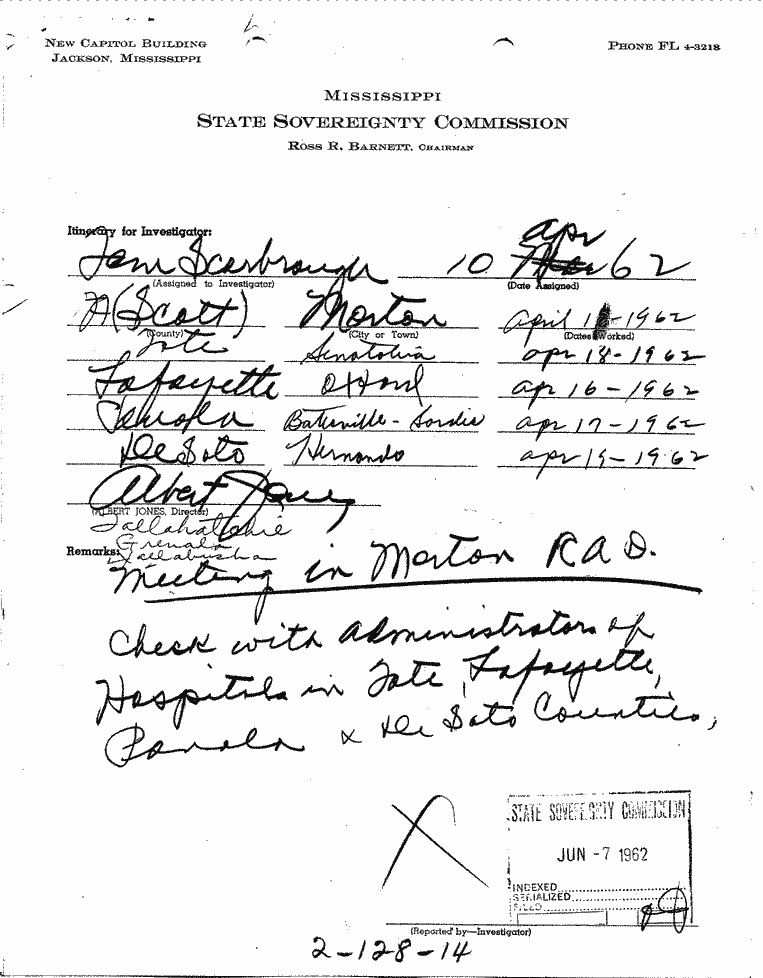 NEW CAPITOL BUILDING
JACKSON, MISSISSIPPI
PHONE FL 4-3218
MISSISSIPPI
STATE SOVEREIGNTY COMMISSION
ROSS R. BARNETT, CHAIRMAN
Itinerary for Investigator:
Tom Scarbrough 10 Apr 62
(Assigned to Investigator) (Date Assigned)
(Scott) Morton April 1 -1962
(County) (City or Town) (Dates Worked)
Tate Senatobia Apr 18-1962
Lafayette Oxford Apr 16-1962
Panola Batesville-Sardis Apr 17-1962
De Soto Hernando Apr 19-1962
Albert Jones
(ALBERT JONES, Director)
Tallahatchie
Grenada
Yallabusha
Remarks:
Meeting in Morton
Check with administrators of
Hospitals in Tate, Lafayette,
Panola & De Soto Counties,
STATE SOVEREIGNTY COMMISSION
JUN -7 1962
INDEXED
SERIALIZED
FILED
(Reported by—Investigator)
2-128-14